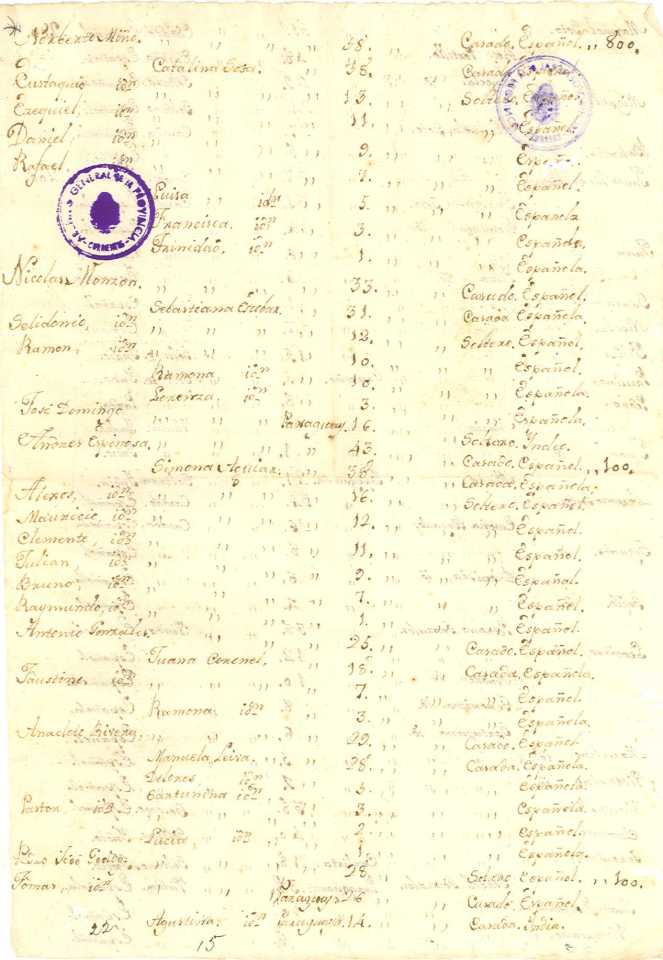 Norberto Miño. 38. ,, ,, Casado. Español. ,, 800.
Catalina 38. ,, ,, Casada.
Eustaquio idm ,, ,, 13. ,, ,, Soltero. Español.
Ezequiel, idm ,, ,, 11. ,, ,, Español.
Daniel, idm ,, ,, 9. ,, ,, Español.
Rafael, idm ,, ,, 7. ,, ,, Español.
Luisa idm 5. ,, ,, Española
Francisca. idm 3. ,, ,, Española.
Trinidad. idm 1. ,, ,, Española.
Nicolas Monzon. 33. ,, ,, Casado. Español.
Sebastiana Escobar. 31. ,, ,, Casada Española.
Selidonio, idm ,, ,, 12. ,, ,, Soltero. Español.
Ramon, idm ,, ,, 10. ,, ,, Español.
Ramona idm 10. ,, ,, Española.
Lorenza. idm 3. ,, ,, Española.
José Domingo ,, ,, Paraguay. 16. ,, ,, Soltero. Indio.
Andres Espinosa. ,, ,, 43. ,, ,, Casado. Español. ,, 100.
Simona Aguiar. 38. ,, ,, Casada. Española.
Alexos, idm ,, ,, 16. ,, ,, Soltero. Español.
Mauricio, idm ,, ,, 12. ,, ,, Español.
Clemente, idm ,, ,, 11. ,, ,, Español.
Julian, idm ,, ,, 9. ,, ,, Español.
Bruno, idm ,, ,, 7. ,, ,, Español.
Raymundo, idm ,, ,, 1. ,, ,, Español.
Antonio Gonzales. ,, ,, 25. ,, ,, Casado. Español.
Juana Coronel. 18. ,, ,, Casada. Española.
Faustino idm ,, ,, 7. ,, ,, Español.
Ramona, idm 3. ,, ,, Española.
Anacleto ,, ,, 29. ,, ,, Casado. Español
Manuela Leiva. 28. ,, ,, Casada. Española.
Dolores idm ,, ,, Española.
idm 3. ,, ,, Española.
Pastor, idm ,, ,, 2. ,, ,, Español.
Lucia, idm 1. ,, ,, Española.
José 28. ,, ,, Soltero. Español. ,, 100.
Tomas, idm ,, ,, Paraguay 26 ,, ,, Casado. Español.
Agustina. idm Paraguay. 14. ,, ,, Casada. India.
22 15
GENERAL DE LA PROVINCIA
CORRIENTES